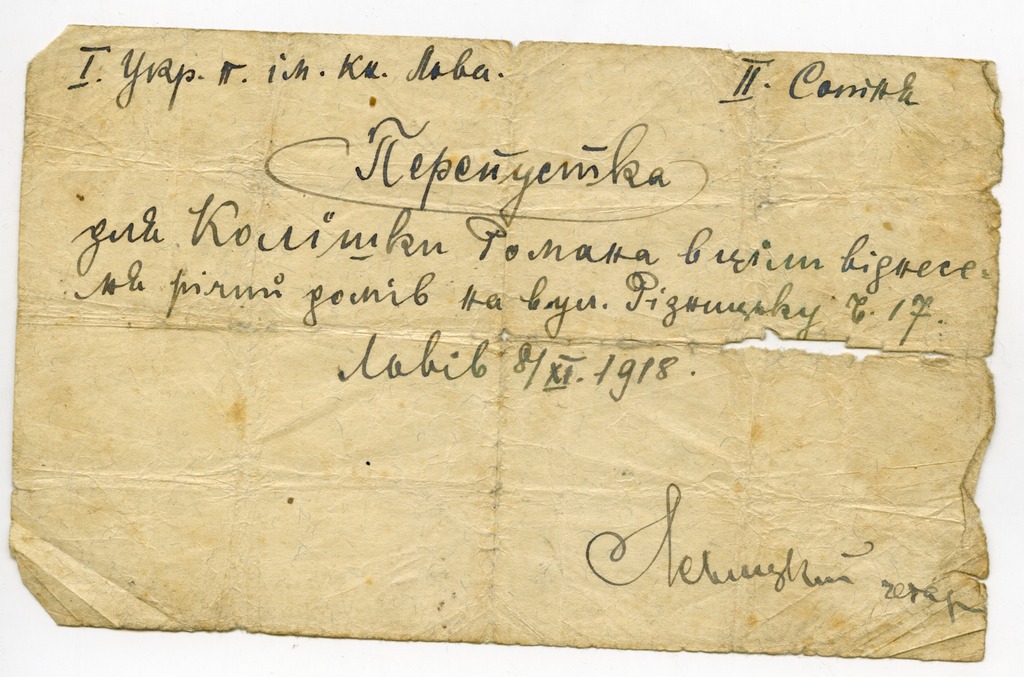 I. Укр. п. ім. кн. Льва.
II. Сотня
Перепустка
для Колїшки Романа в ціли віднесе-
ня річий домів на вул. Різницьку ч. 17.
Львів 8/XI. 1918.
Левицкий четар